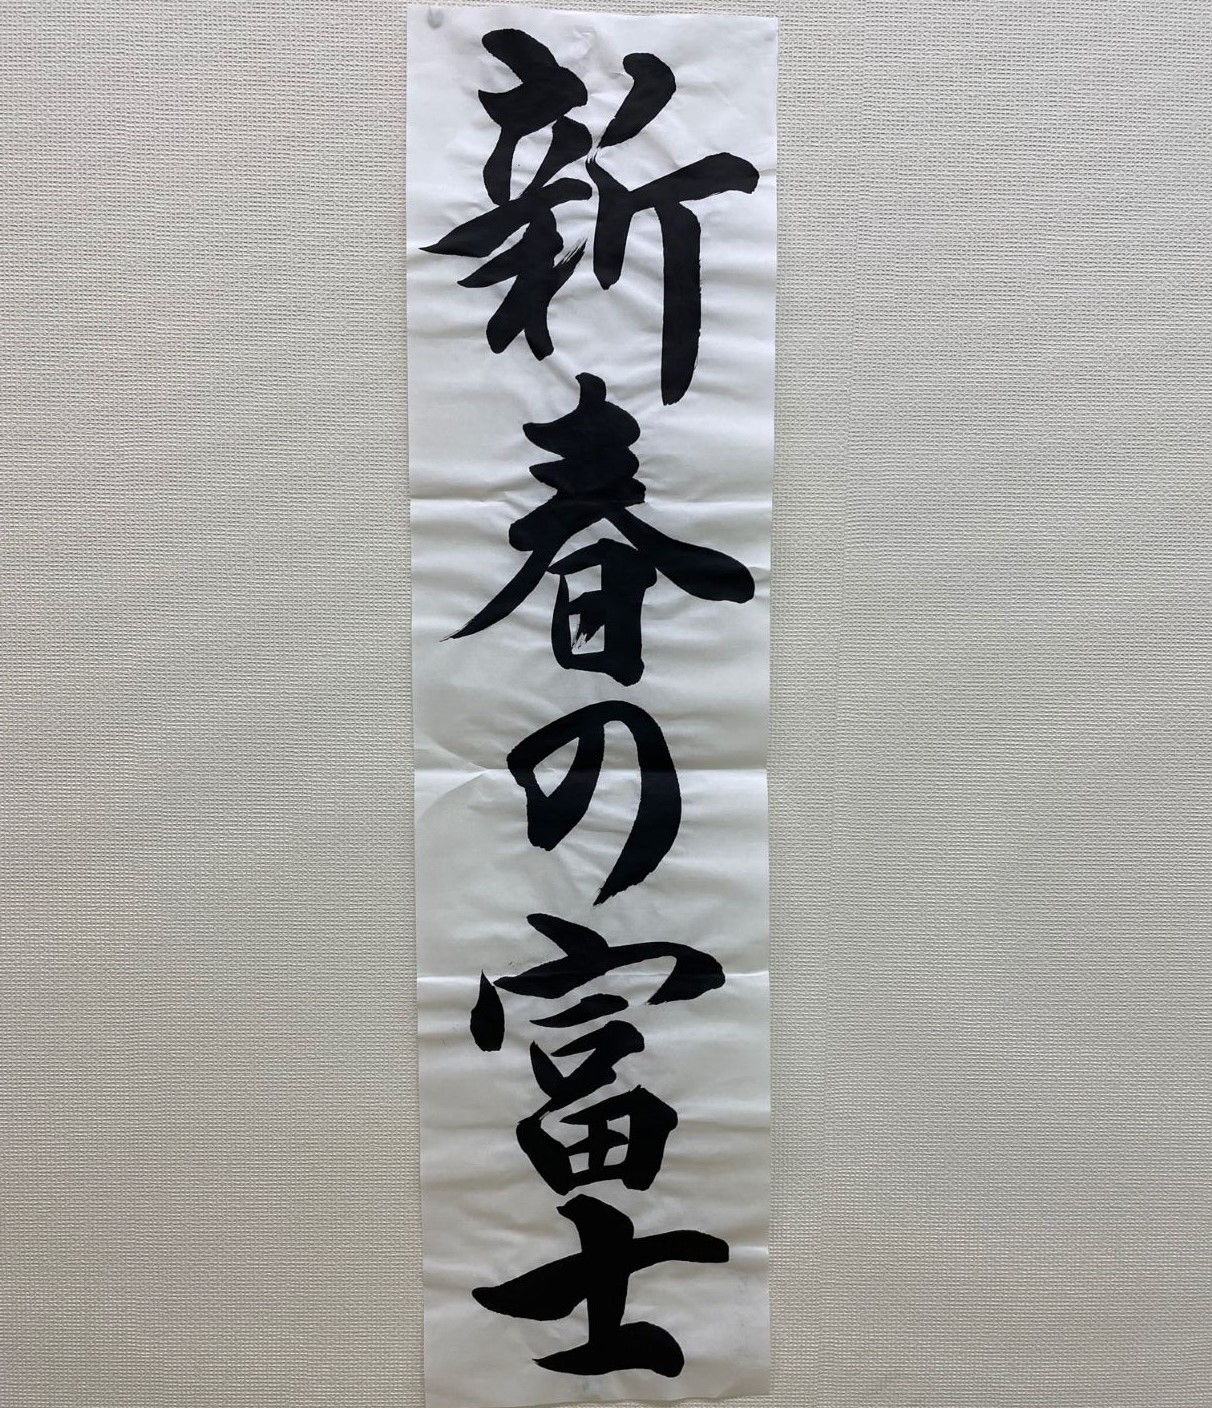 新春の富士